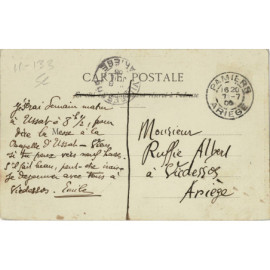 11-133
CARTE POSTALE
PAMIERS
16 20
7-7
ARIÈGE
J'irai demain matin
à Ussat à 8h 1/2, pour
dire la Messe à la
Chapelle d'Ussat.
si tu peux vers neuf heures.
S'il fait beau,
déjeuner avec toi à
Vicdessos. Emile
Monsieur
Ruffié Albert
à Vicdessos
Ariège